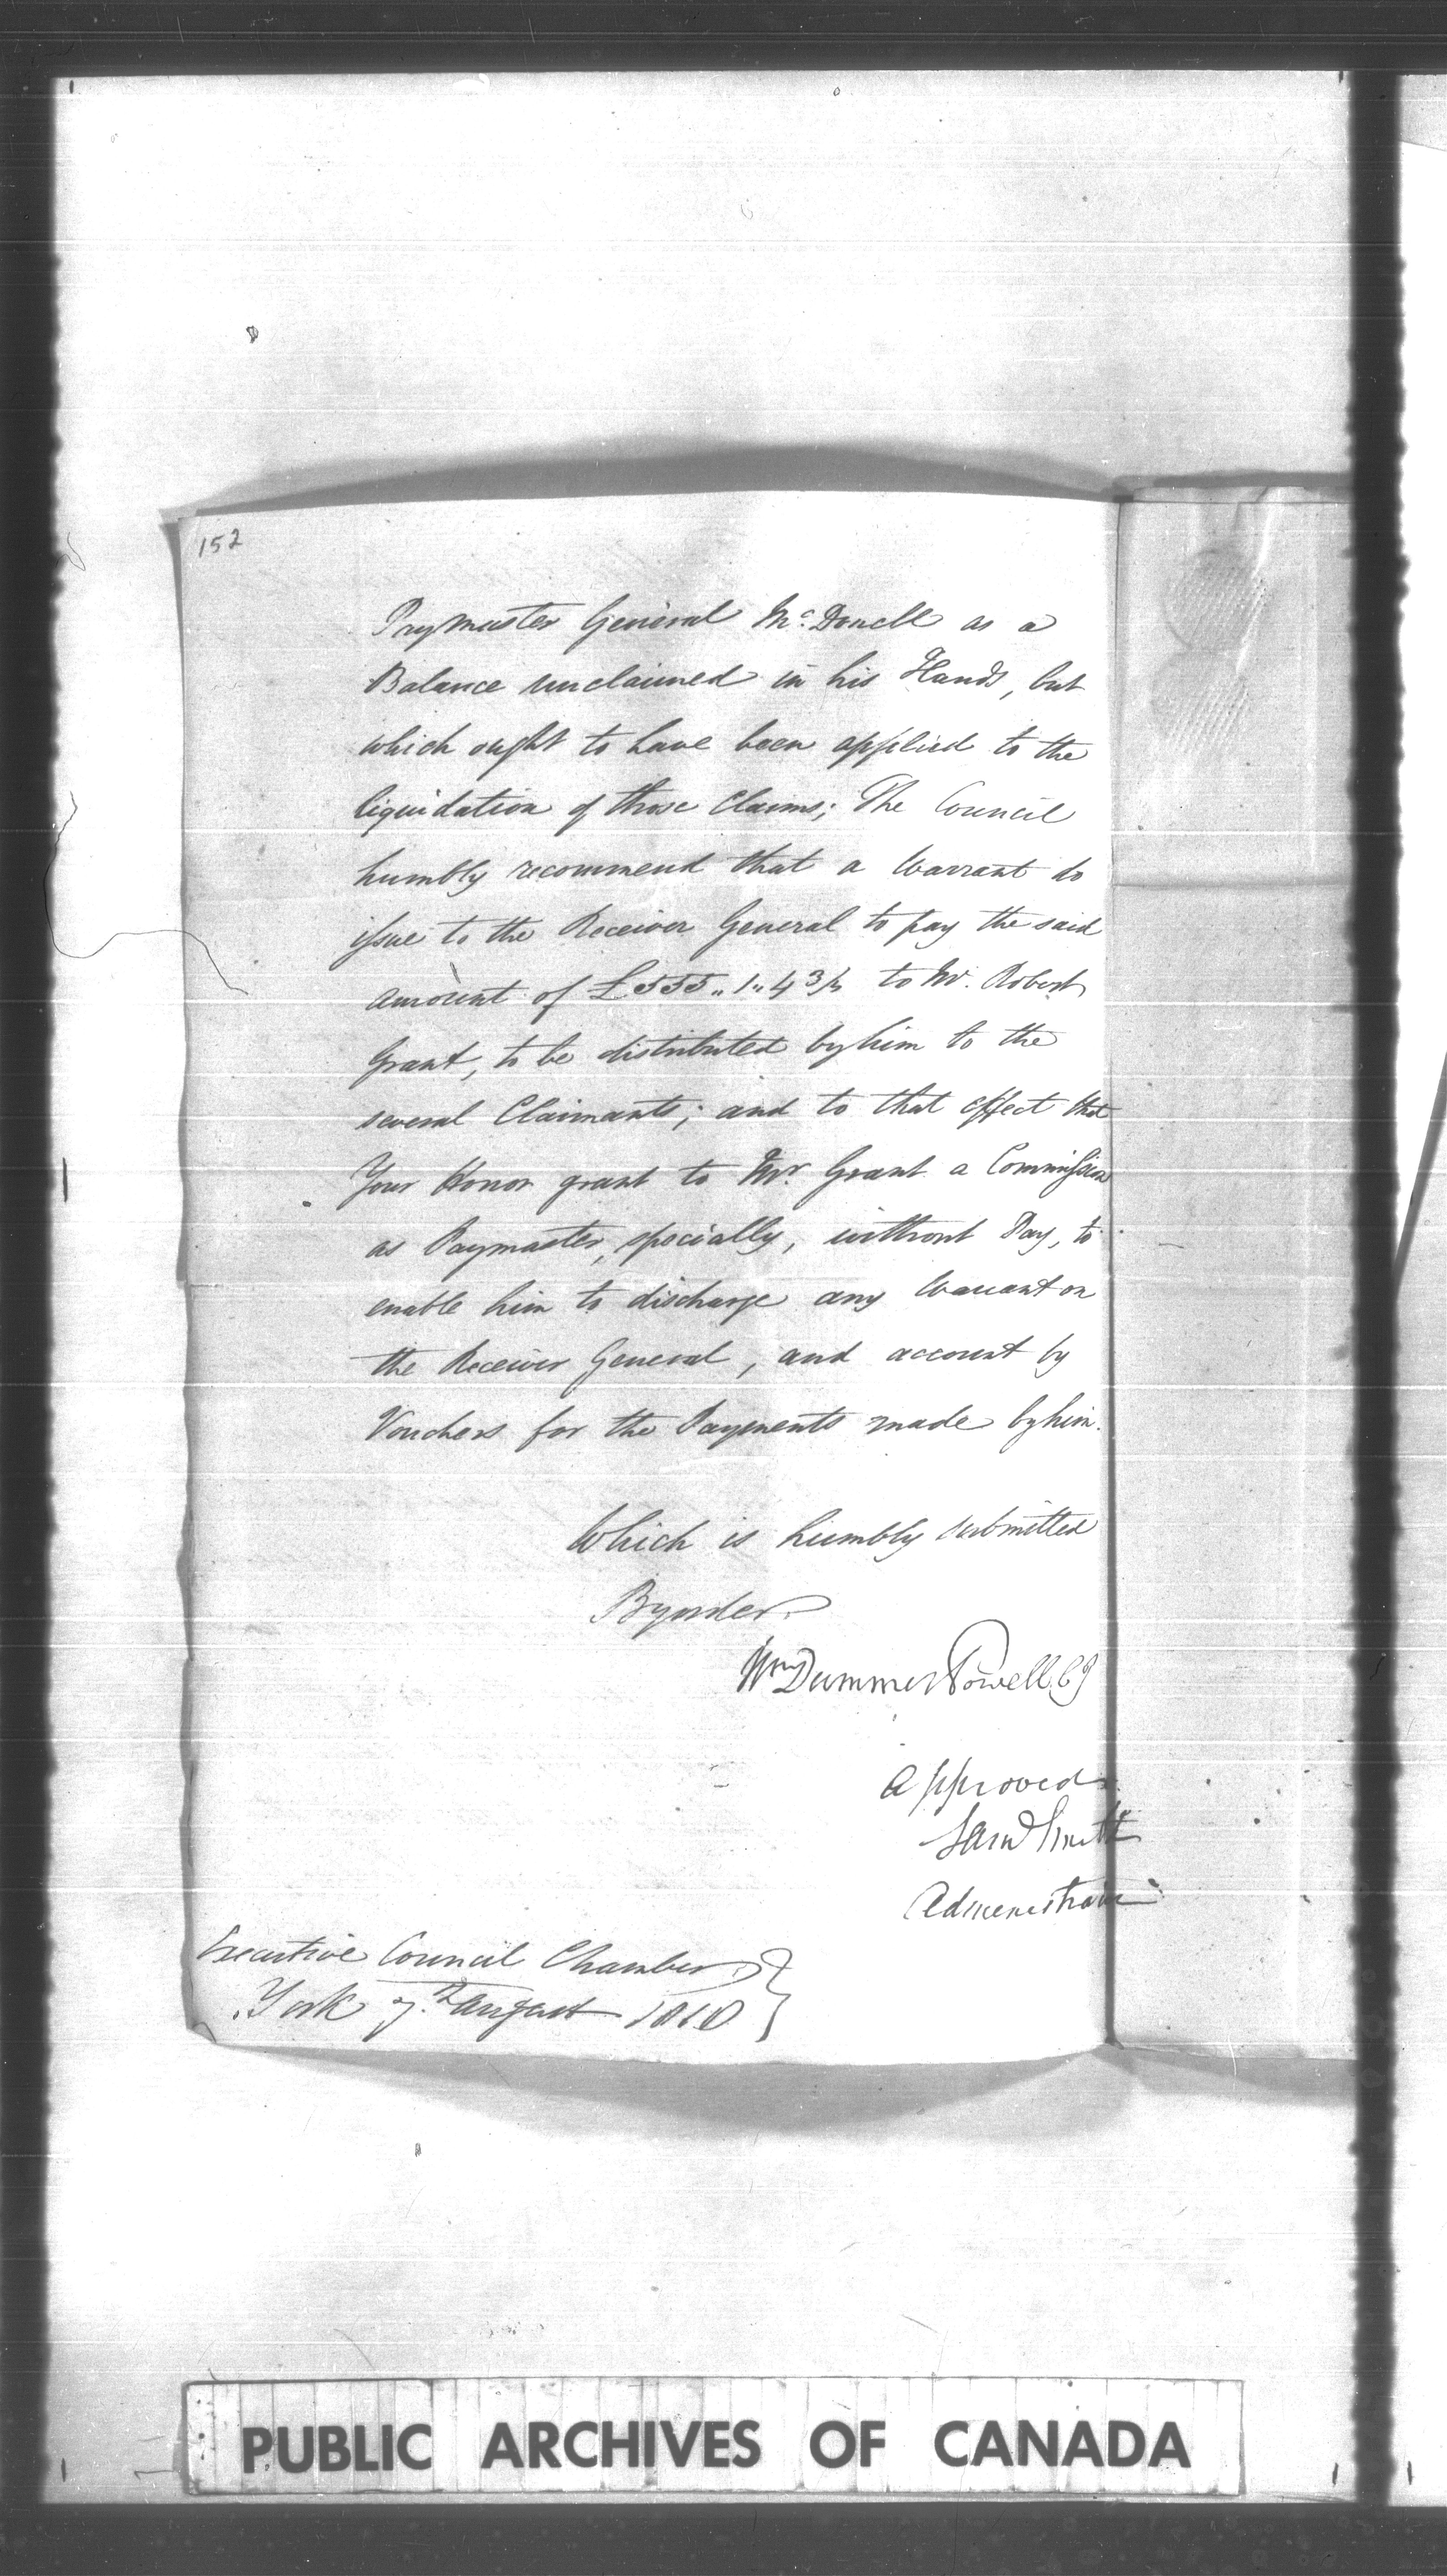 152
Paymaster General Mc. Donell as a
Balance unclaimed in his Hands, but
which ought to have been applied to the
liquidation of those Claims; The Council
humbly recommend that a Warrant do
issue to the Receiver General to pay the said
amount of £555..1..4 3/4 to Mr. Robert
Grant, to be distributed by him to the
several Claimants; and to that effect that
Your Honor grant to Mr. Grant a Commission
as Paymaster, specially, without Pay, to
enable him to discharge any Warrant on
the Receiver General, and account by
Vouchers for the Payments made by him.
Which is humbly submitted
By order
Wm Dummer Powell CJ
Approved
Saml Smith
Administrator
Executive Council Chamber
York 7th August 1818
PUBLIC ARCHIVES OF CANADA